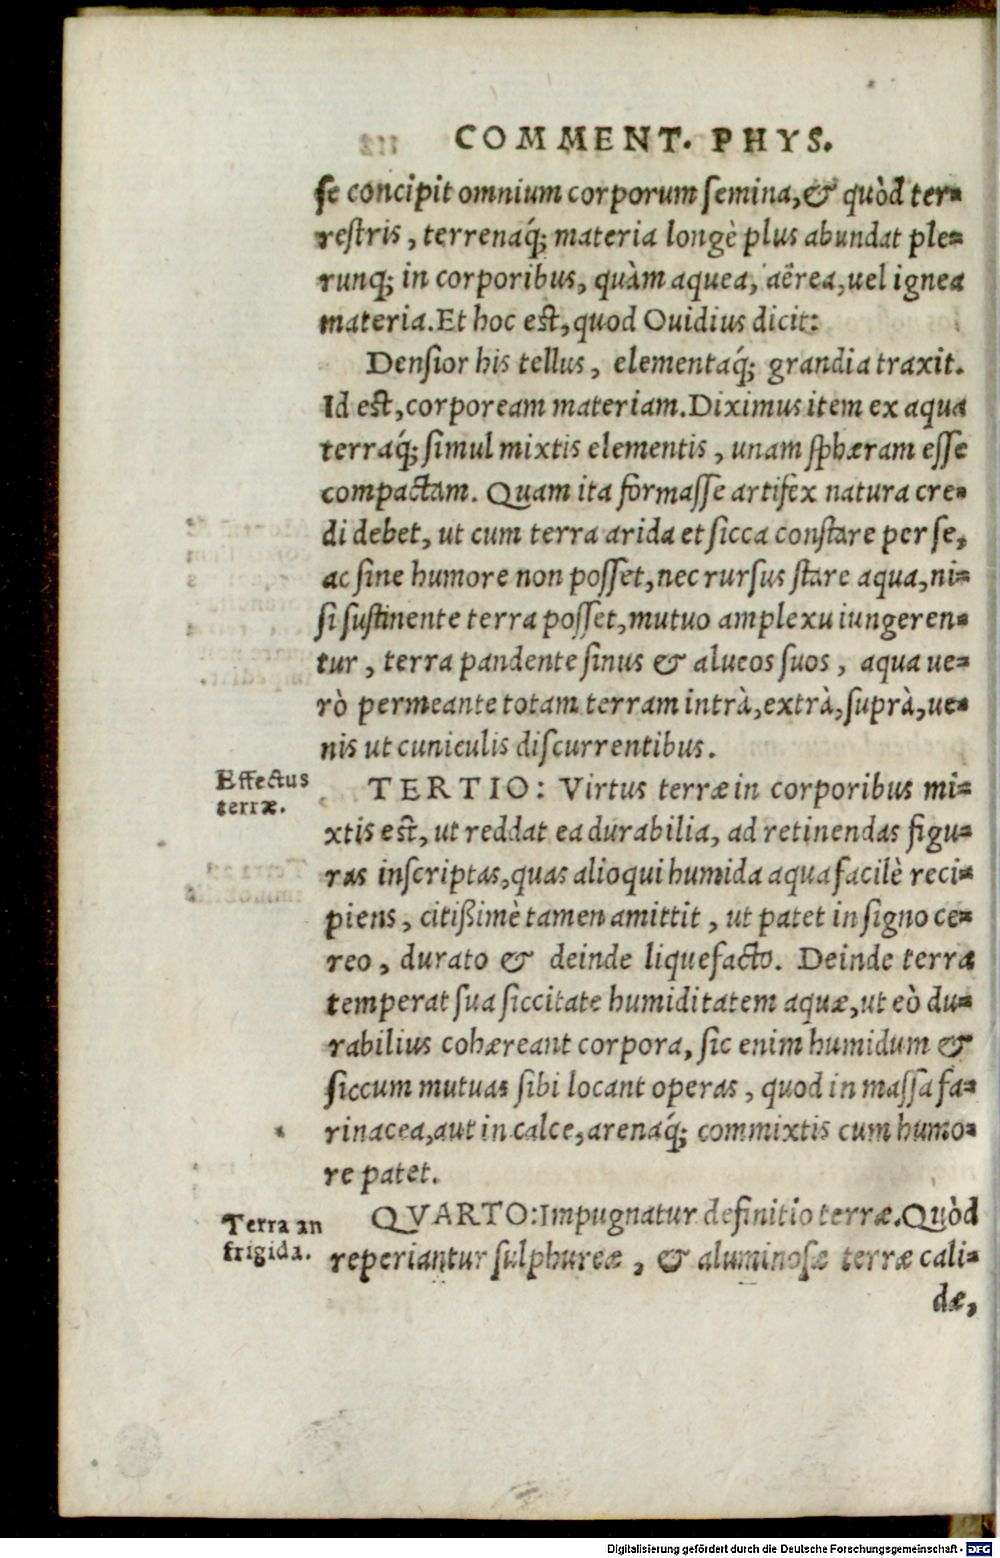 COMMENT. PHYS.
se concipit omnium corporum semina, & quòd ter-
restris, terrenaq́; materia longè plus abundat ple-
runq; in corporibus, quàm aquea, aërea, uel ignea
materia. Et hoc est, quod Ouidius dicit:
Densior his tellus, elementaq́; grandia traxit.
Id est, corpoream materiam. Diximus item ex aqua
terraq́; simul mixtis elementis, unam sphæram esse
compactam. Quam ita formasse artifex natura cre-
di debet, ut cum terra arida et sicca constare per se,
ac sine humore non posset, nec rursus stare aqua, ni-
si sustinente terra posset, mutuo amplexu iungeren-
tur, terra pandente sinus & alueos suos, aqua ue-
rò permeante totam terram intrà, extrà, suprà, ue-
nis ut cuniculis discurrentibus.
Effectus
terræ.
TERTIO: Virtus terræ in corporibus mi-
xtis est, ut reddat ea durabilia, ad retinendas figu-
ras inscriptas, quas alioqui humida aqua facilè reci-
piens, citißimè tamen amittit, ut patet in signo ce-
reo, durato & deinde liquefacto. Deinde terra
temperat sua siccitate humiditatem aquæ, ut eò du-
rabilius cohæreant corpora, sic enim humidum &
siccum mutuas sibi locant operas, quod in massa fa-
rinacea, aut in calce, arenaq́; commixtis cum humo-
re patet.
Terra an
frigida.
QVARTO: Impugnatur definitio terræ. Quòd
reperiantur sulphureæ, & aluminosæ terræ cali-
dæ,
Digitalisierung gefördert durch die Deutsche Forschungsgemeinschaft - DFG